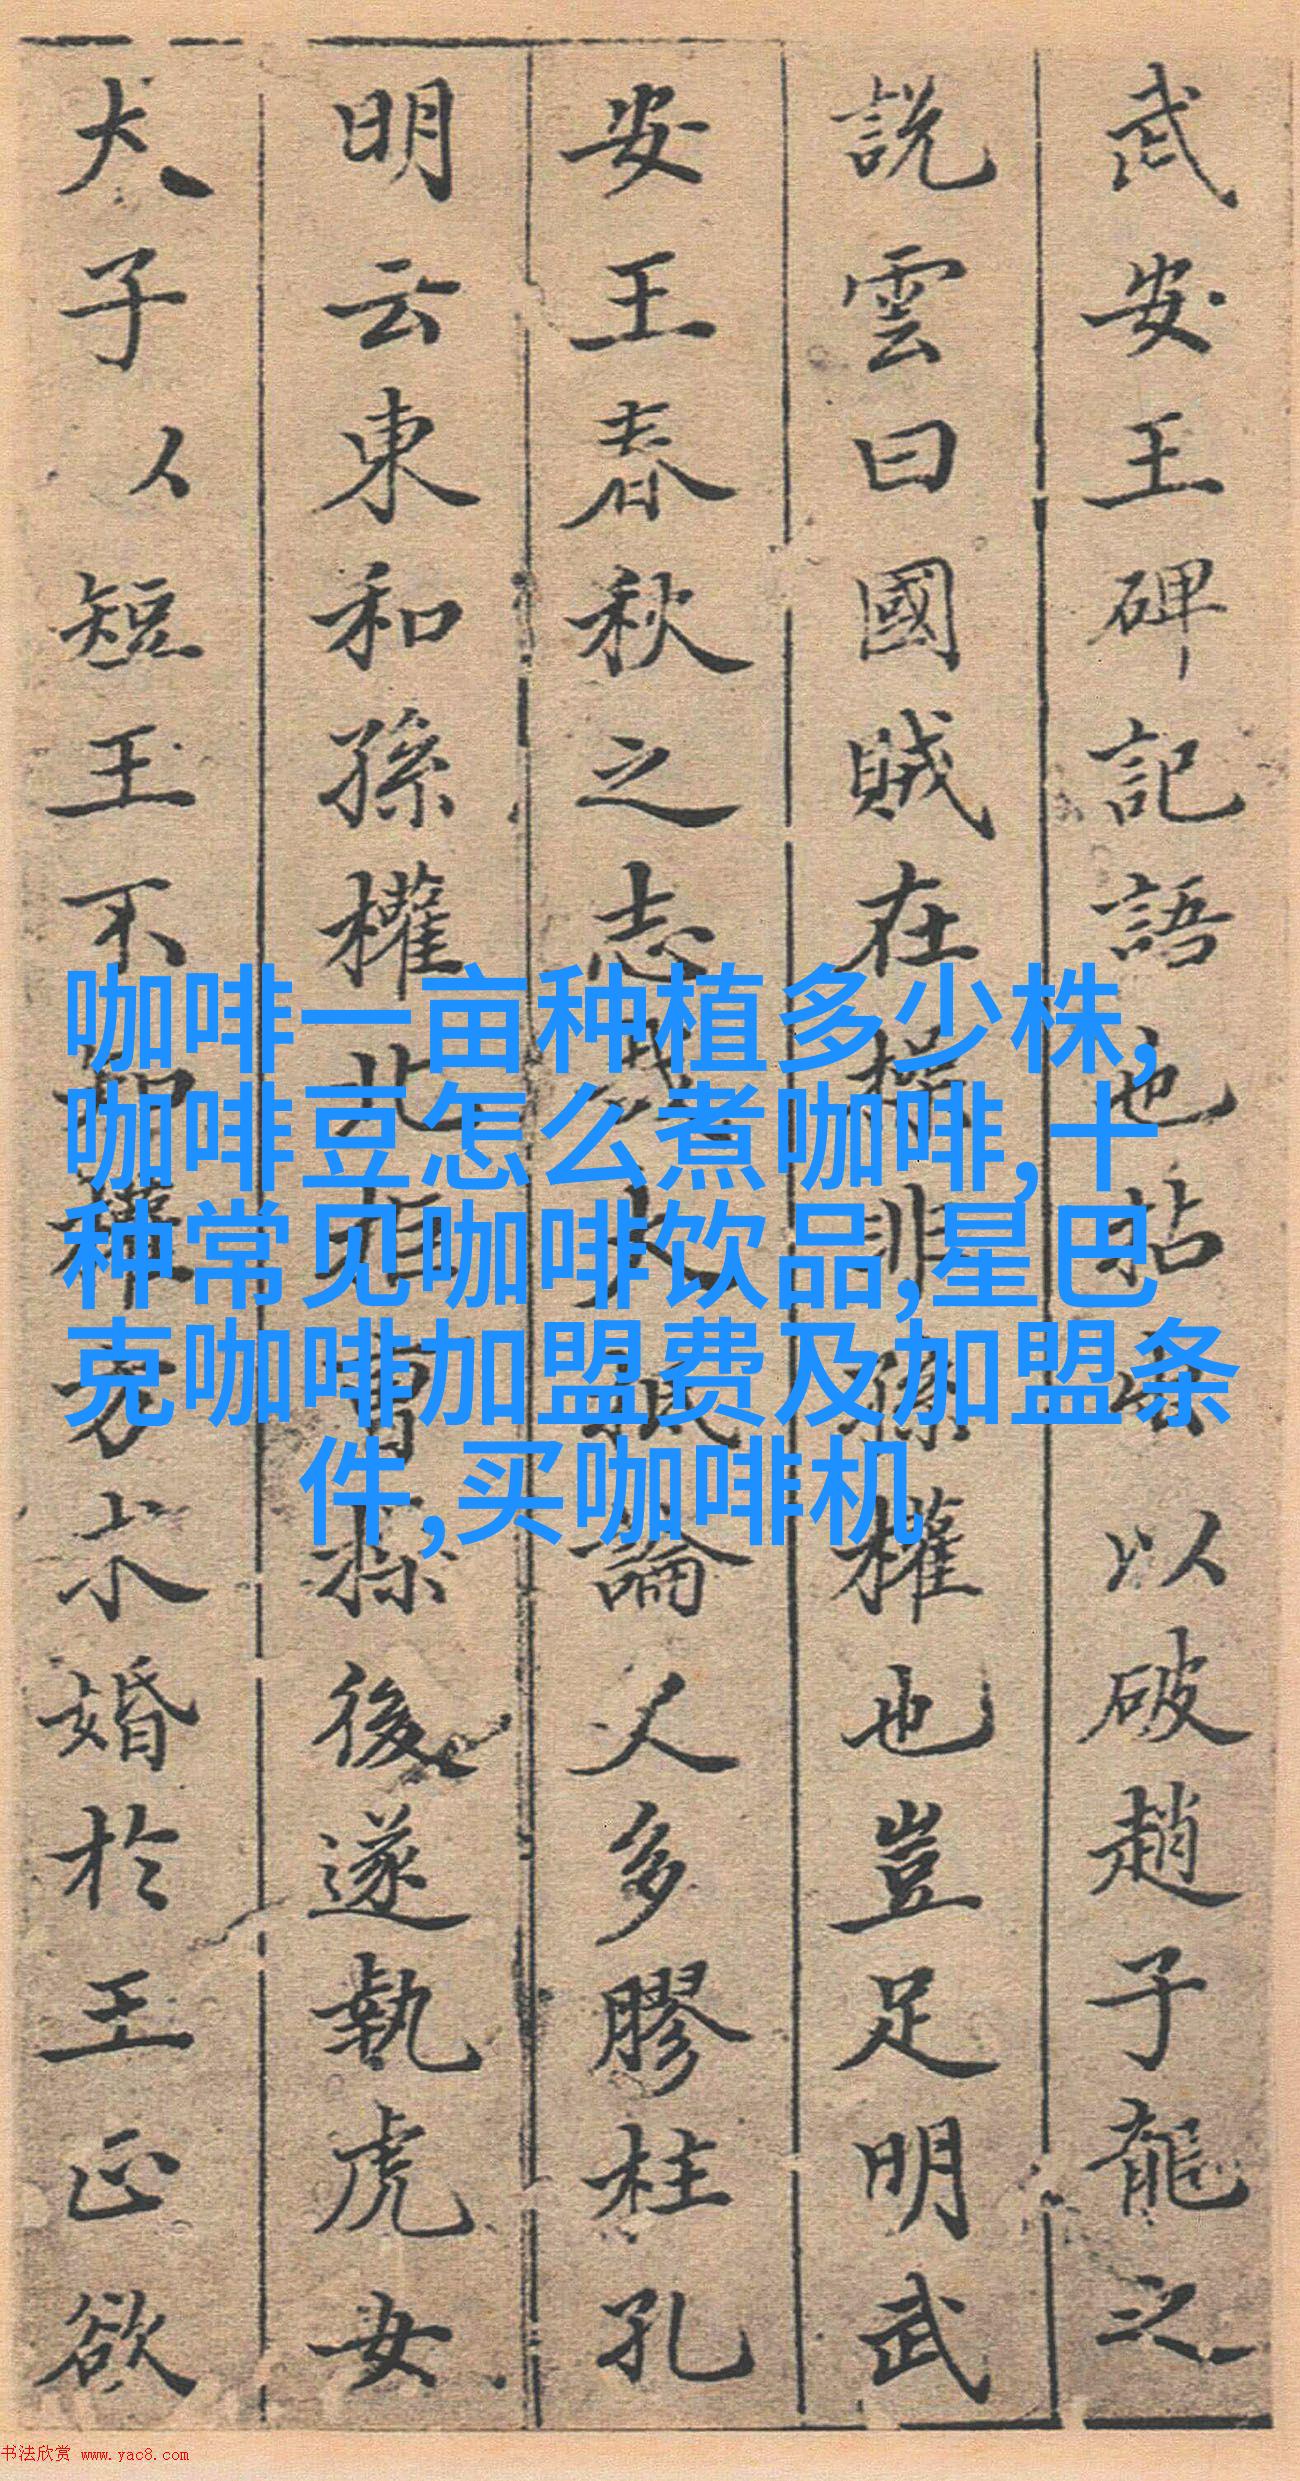 武安王碑記語也拈以破趙子龍之
說雲曰國賊在操非孫權也豈足明武
安王春秋之志哉大抵論人多膠柱孔
明云東和孫權北拒曹操後遂執虎女
大子以短王不知權方求婚於王正欲
咖啡一亩种植多少株,
咖啡豆怎么煮咖啡,十
种常见咖啡饮品,星巴
克咖啡加盟费及加盟条
件,买咖啡机
书法欣赏 www.yac8.com